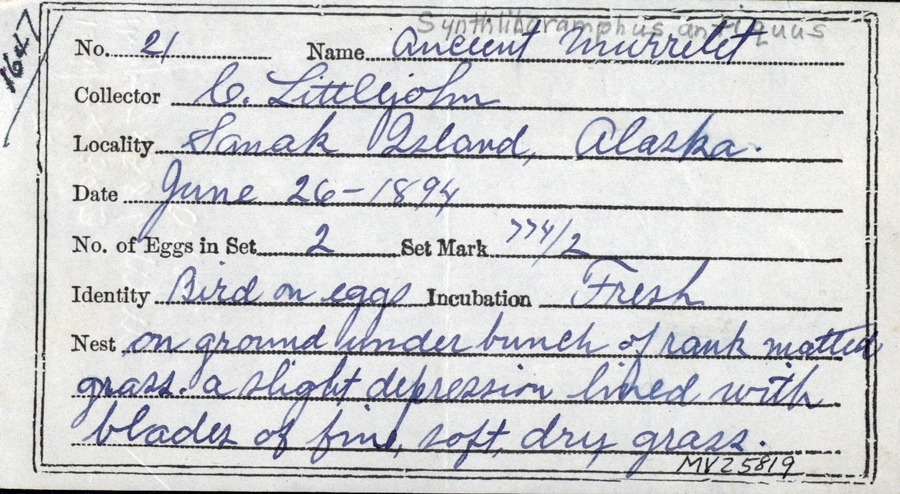 Synthliboramphus antiquus
1647
No. 21 Name Ancient Murrelet
Collector C. Littlejohn
Locality Sanak Island, Alaska.
Date June 26-1894
No. of Eggs in Set 2 Set Mark 774/2
Identity Bird on eggs Incubation Fresh
Nest on ground under bunch of rank matted
grass. a slight depression lined with
blades of fine, soft, dry grass.
MVZ5819